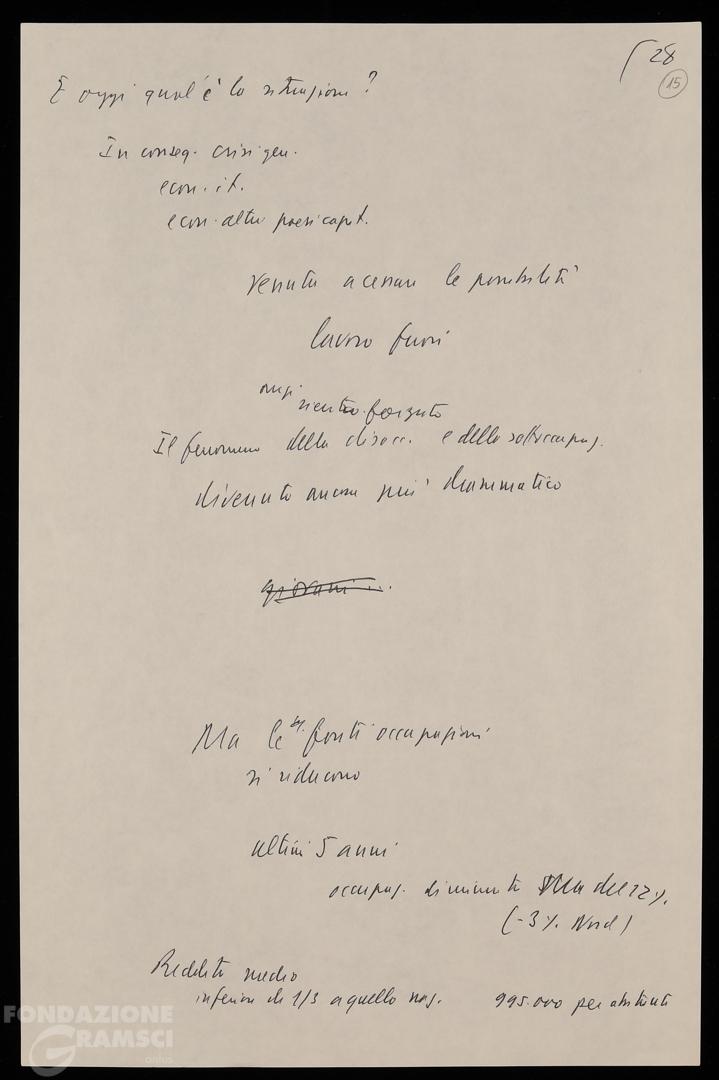 28
15
E oggi qual'è la situazione?
In conseg. crisi gen.
econ. it.
econ. altri paesi capit.
venuta a cessare le possibilità
lavoro fuori
anzi
rientro forzato
Il fenomeno della disocc. e della sottoccupaz.
divenuto ancora più drammatico
giovani ...
Ma le fonti occupazioni
si riducono
ultimi 5 anni
occupaz. diminuita del 12%.
(-3% Nord)
Reddito medio
inferiore di 1/3 a quello naz. 995.000 per abitante
FONDAZIONE
GRAMSCI
onlus